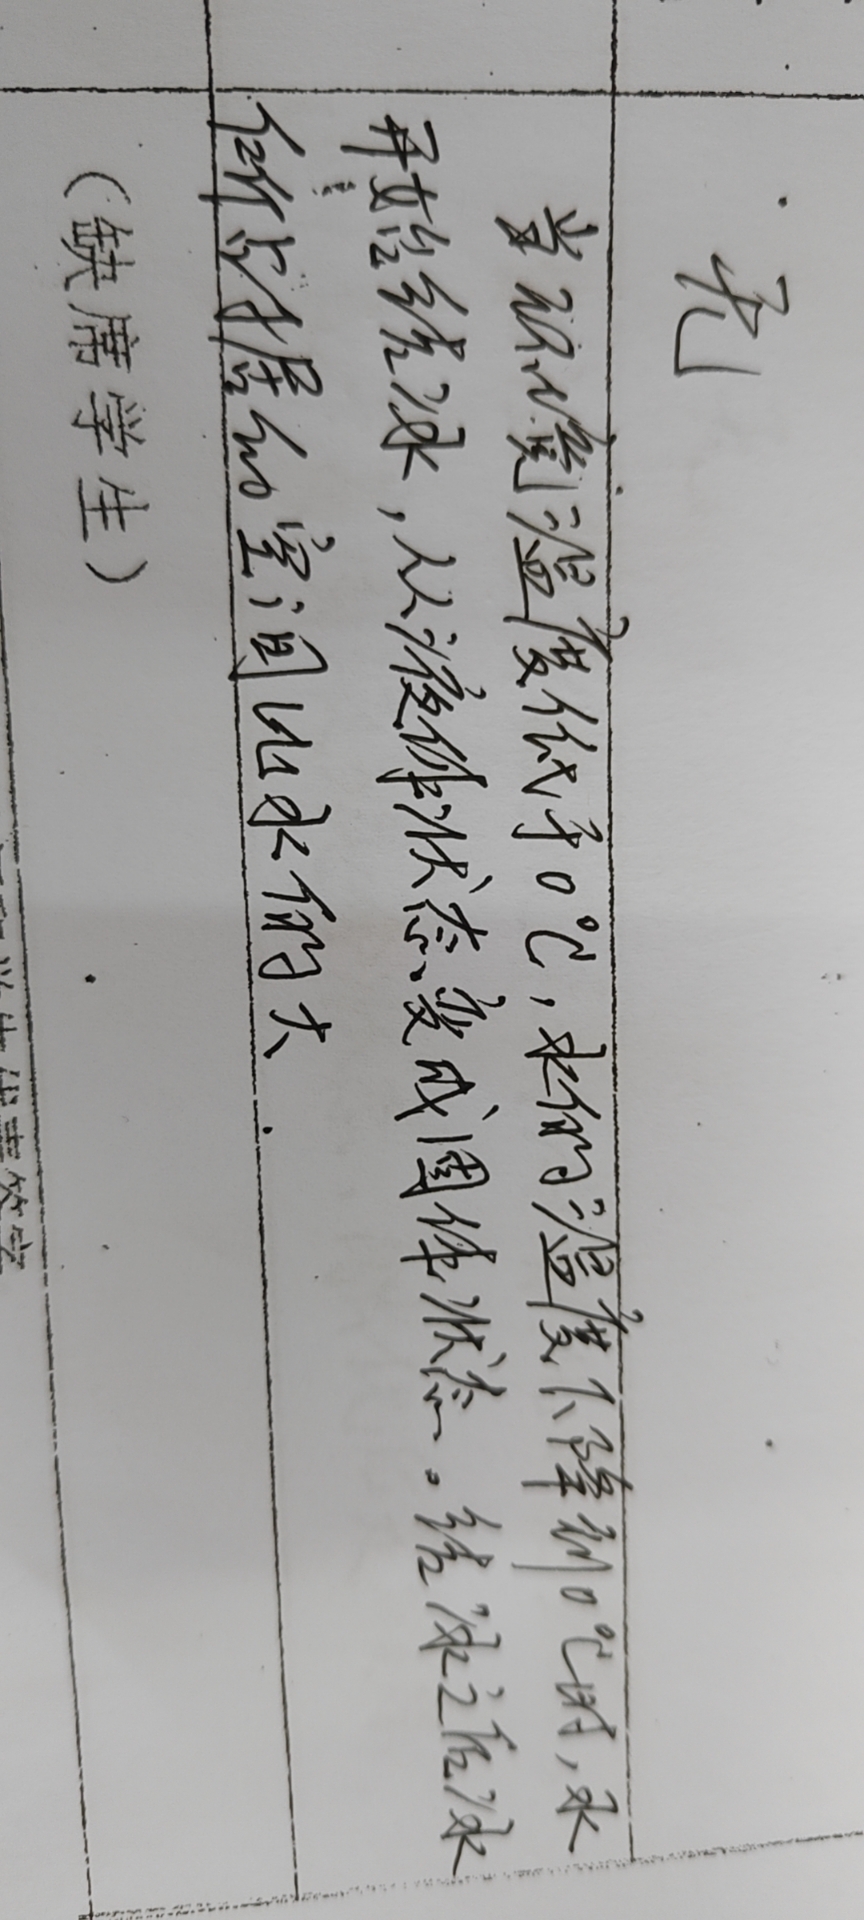 无
当环境温度低于0℃,水的温度下降到0℃时,水
开始结冰,从液体状态变成固体状态。结冰之后冰
体积所占据的空间比水的大.
(缺席学生)